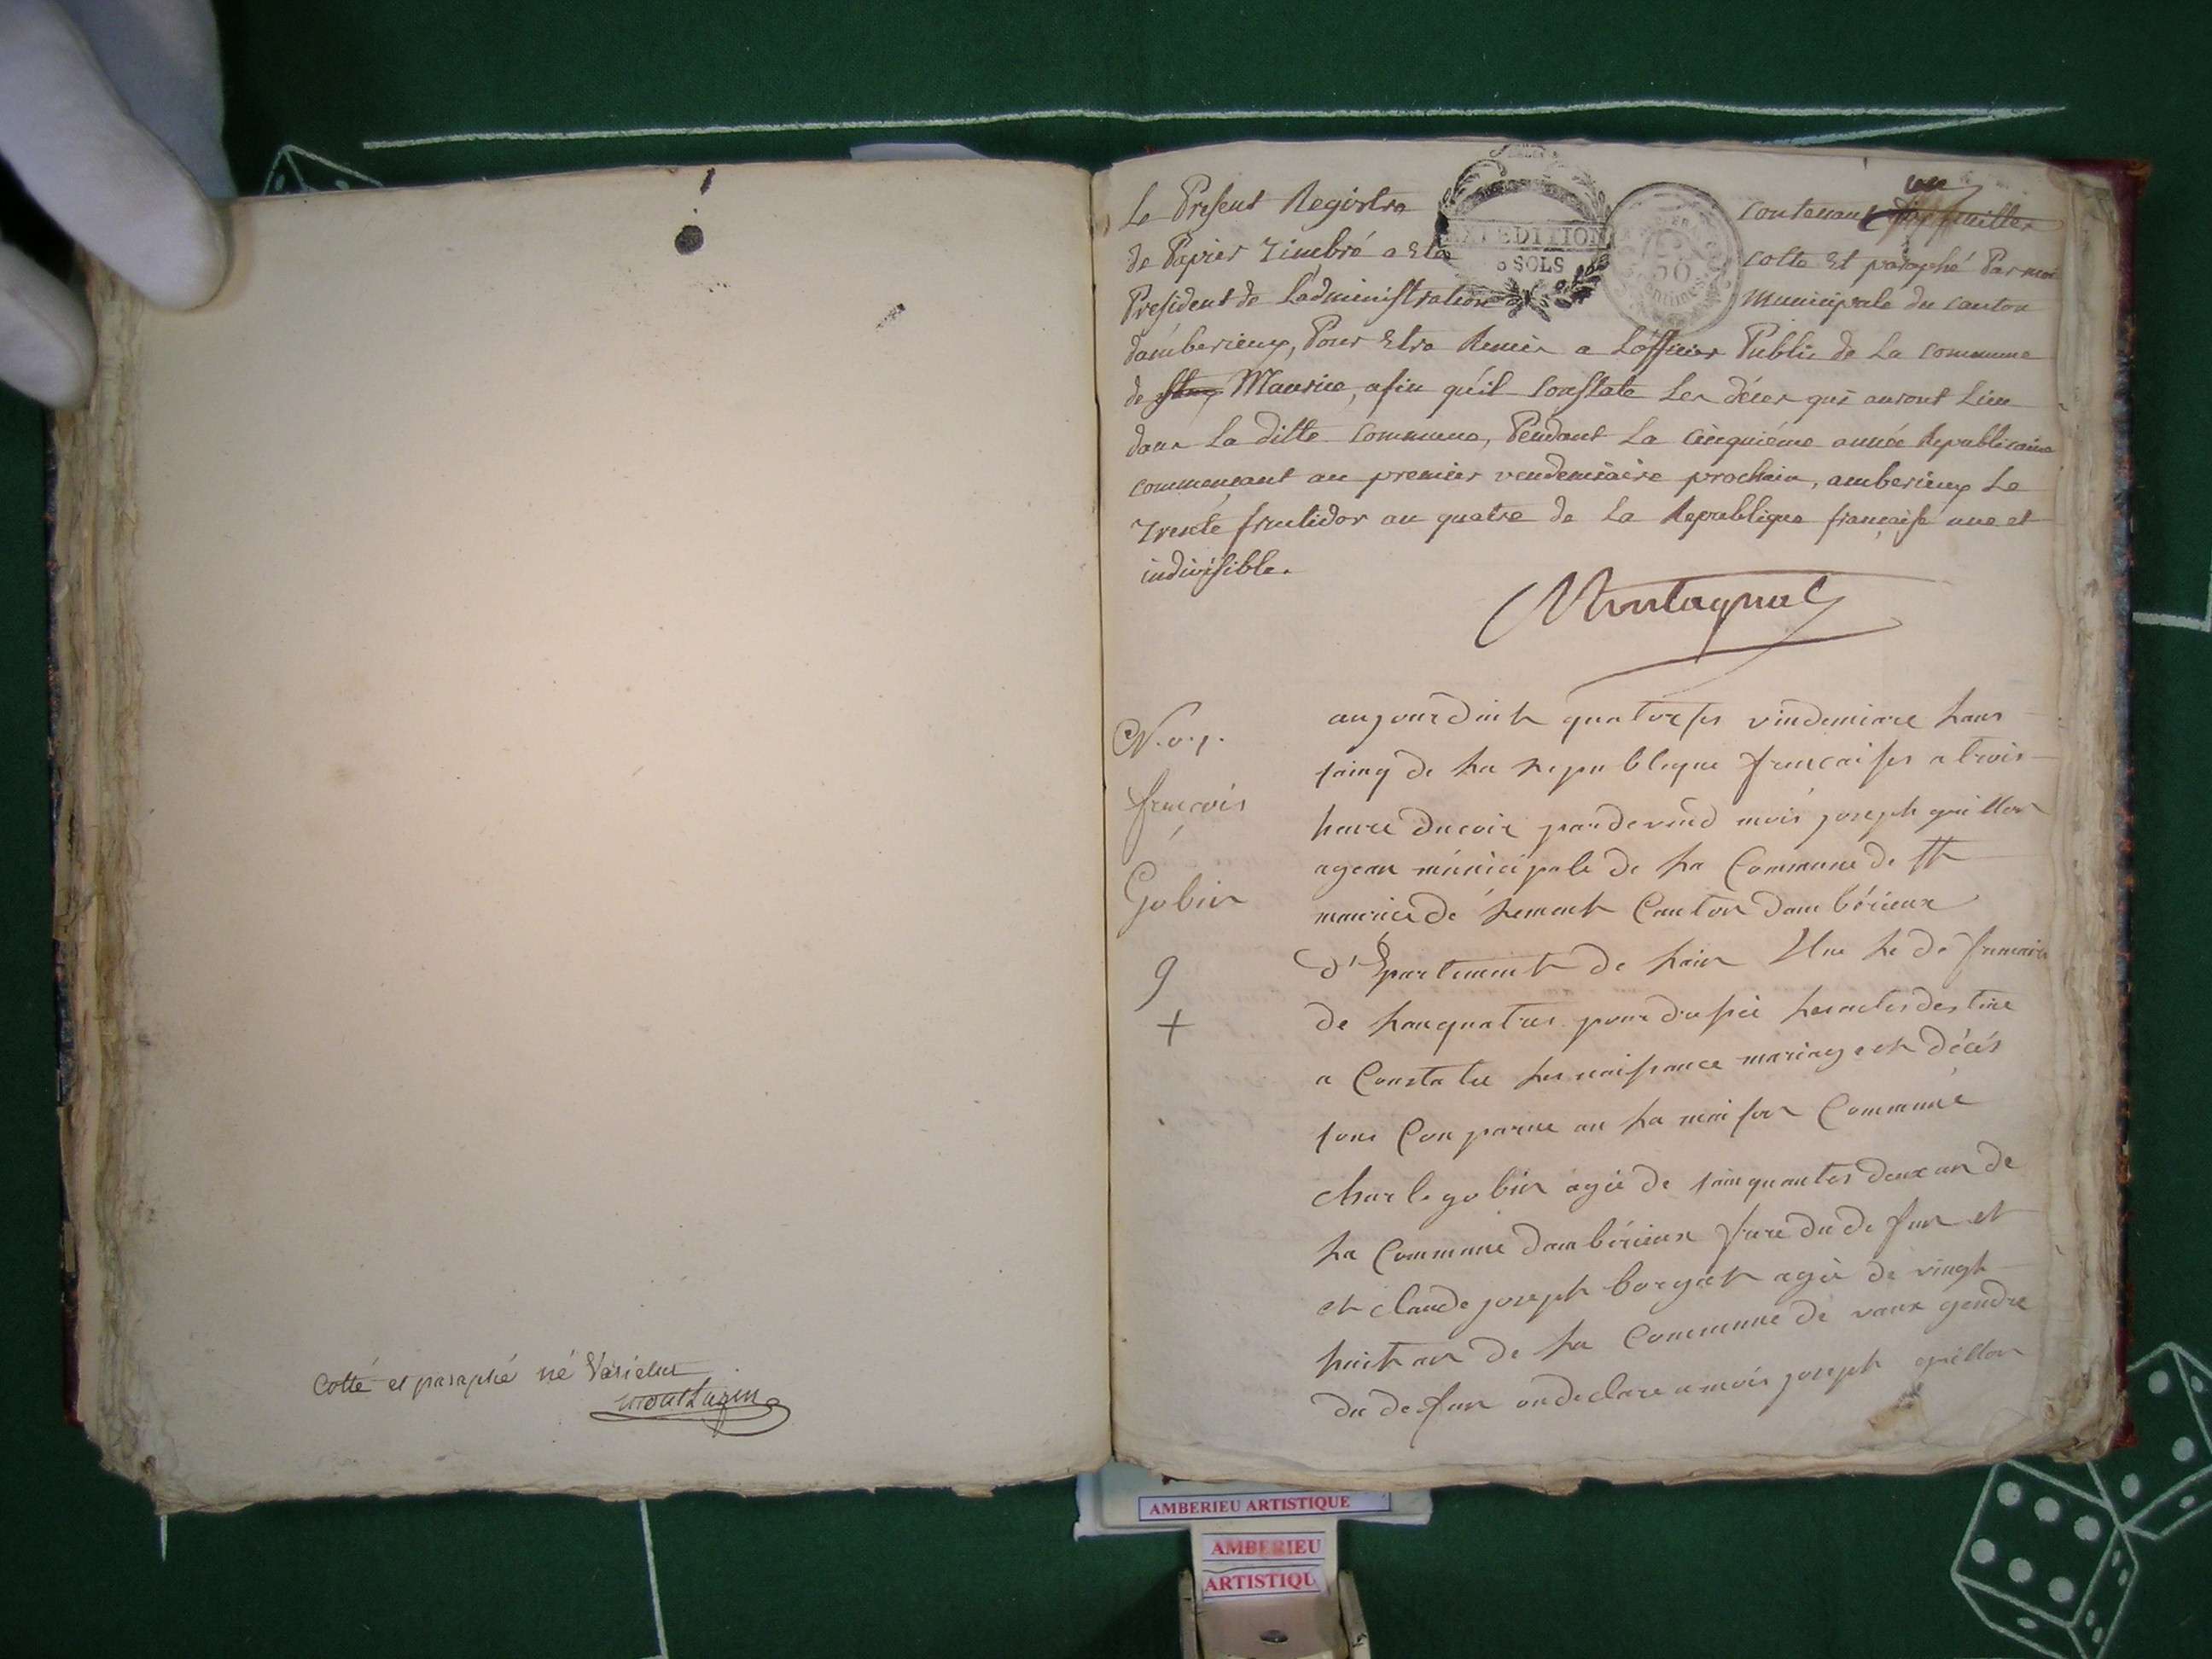 Cotté et paraphé né Varietur
Le Present Registre contenant
EXPEDITION
SOLS
50
Centimes
de Papier Timbré a Eté Cotté Et paraphé Par moi
President de Ladministration Municipale du canton
damberieux, Pour Etre Remis a Lofficier Public de La Commune
de Maurice, afin qu'il Constate Les décès qui auront Lieu
dans La ditte Commune, Pendant La Cinquiéme année Republicaine
commençant au premier vendemiaire prochain, amberieux Le
Trente fructidor an quatre de La Republique française une et
indivisible.
Montagnat
N.o.1.
françois
Gobin
9
+
aujourduit quatorses vindemiare Lans
sainq de La Republique francaises a trois
heure ducoir pardevend mois joseph quillon
agean municipale de La Commune de St
maurice de Remens Canton dambérieux
d'Epartement de Lain de
de Lanquatres pour dresse Lesactes destine
a Constates Les naissance mariages et décés
sons Conparue an La maison Commune
charle gobin agée de sainquantes deux an de
La Commune dambérieux frere du defun et
et claude joseph borgat agée de vingt
huit an de La Commune de vaux gendre
du defun on declare a mois joseph quillon
AMBERIEU ARTISTIQUE
AMBERIEU
ARTISTIQU